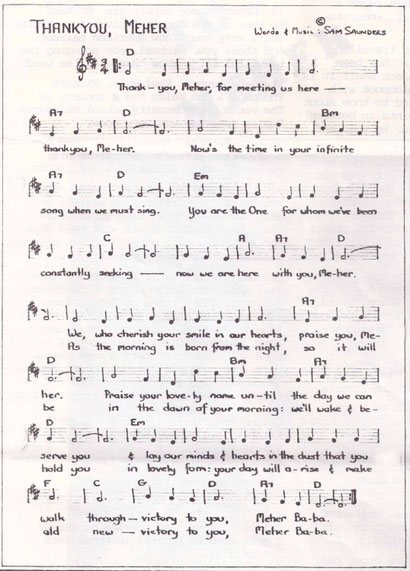 THANKYOU, MEHER
©
Words & Music : SAM SAUNDERS
D
Thank-you, Meher, for meeting us here —
A7 D Bm
thankyou, Me-her. Now's the time in your infinite
A7 D Em
song when we must sing. You are the One for whom we've been
C A A7 D
constantly seeking — now we are here with you, Me-her.
A7
We, who cherish your smile in our hearts, praise you, Me-
As the morning is born from the night, so it will
D Bm A7
her. Praise your love-ly name un-til the day we can
be in the dawn of your morning: we'll wake & be-
D Em
serve you & lay our minds & hearts in the dust that you
hold you in lovely form: your day will a-rise & make
F C G D A7 D
walk through — victory to you, Meher Ba-ba.
old new — victory to you, Meher Ba-ba.